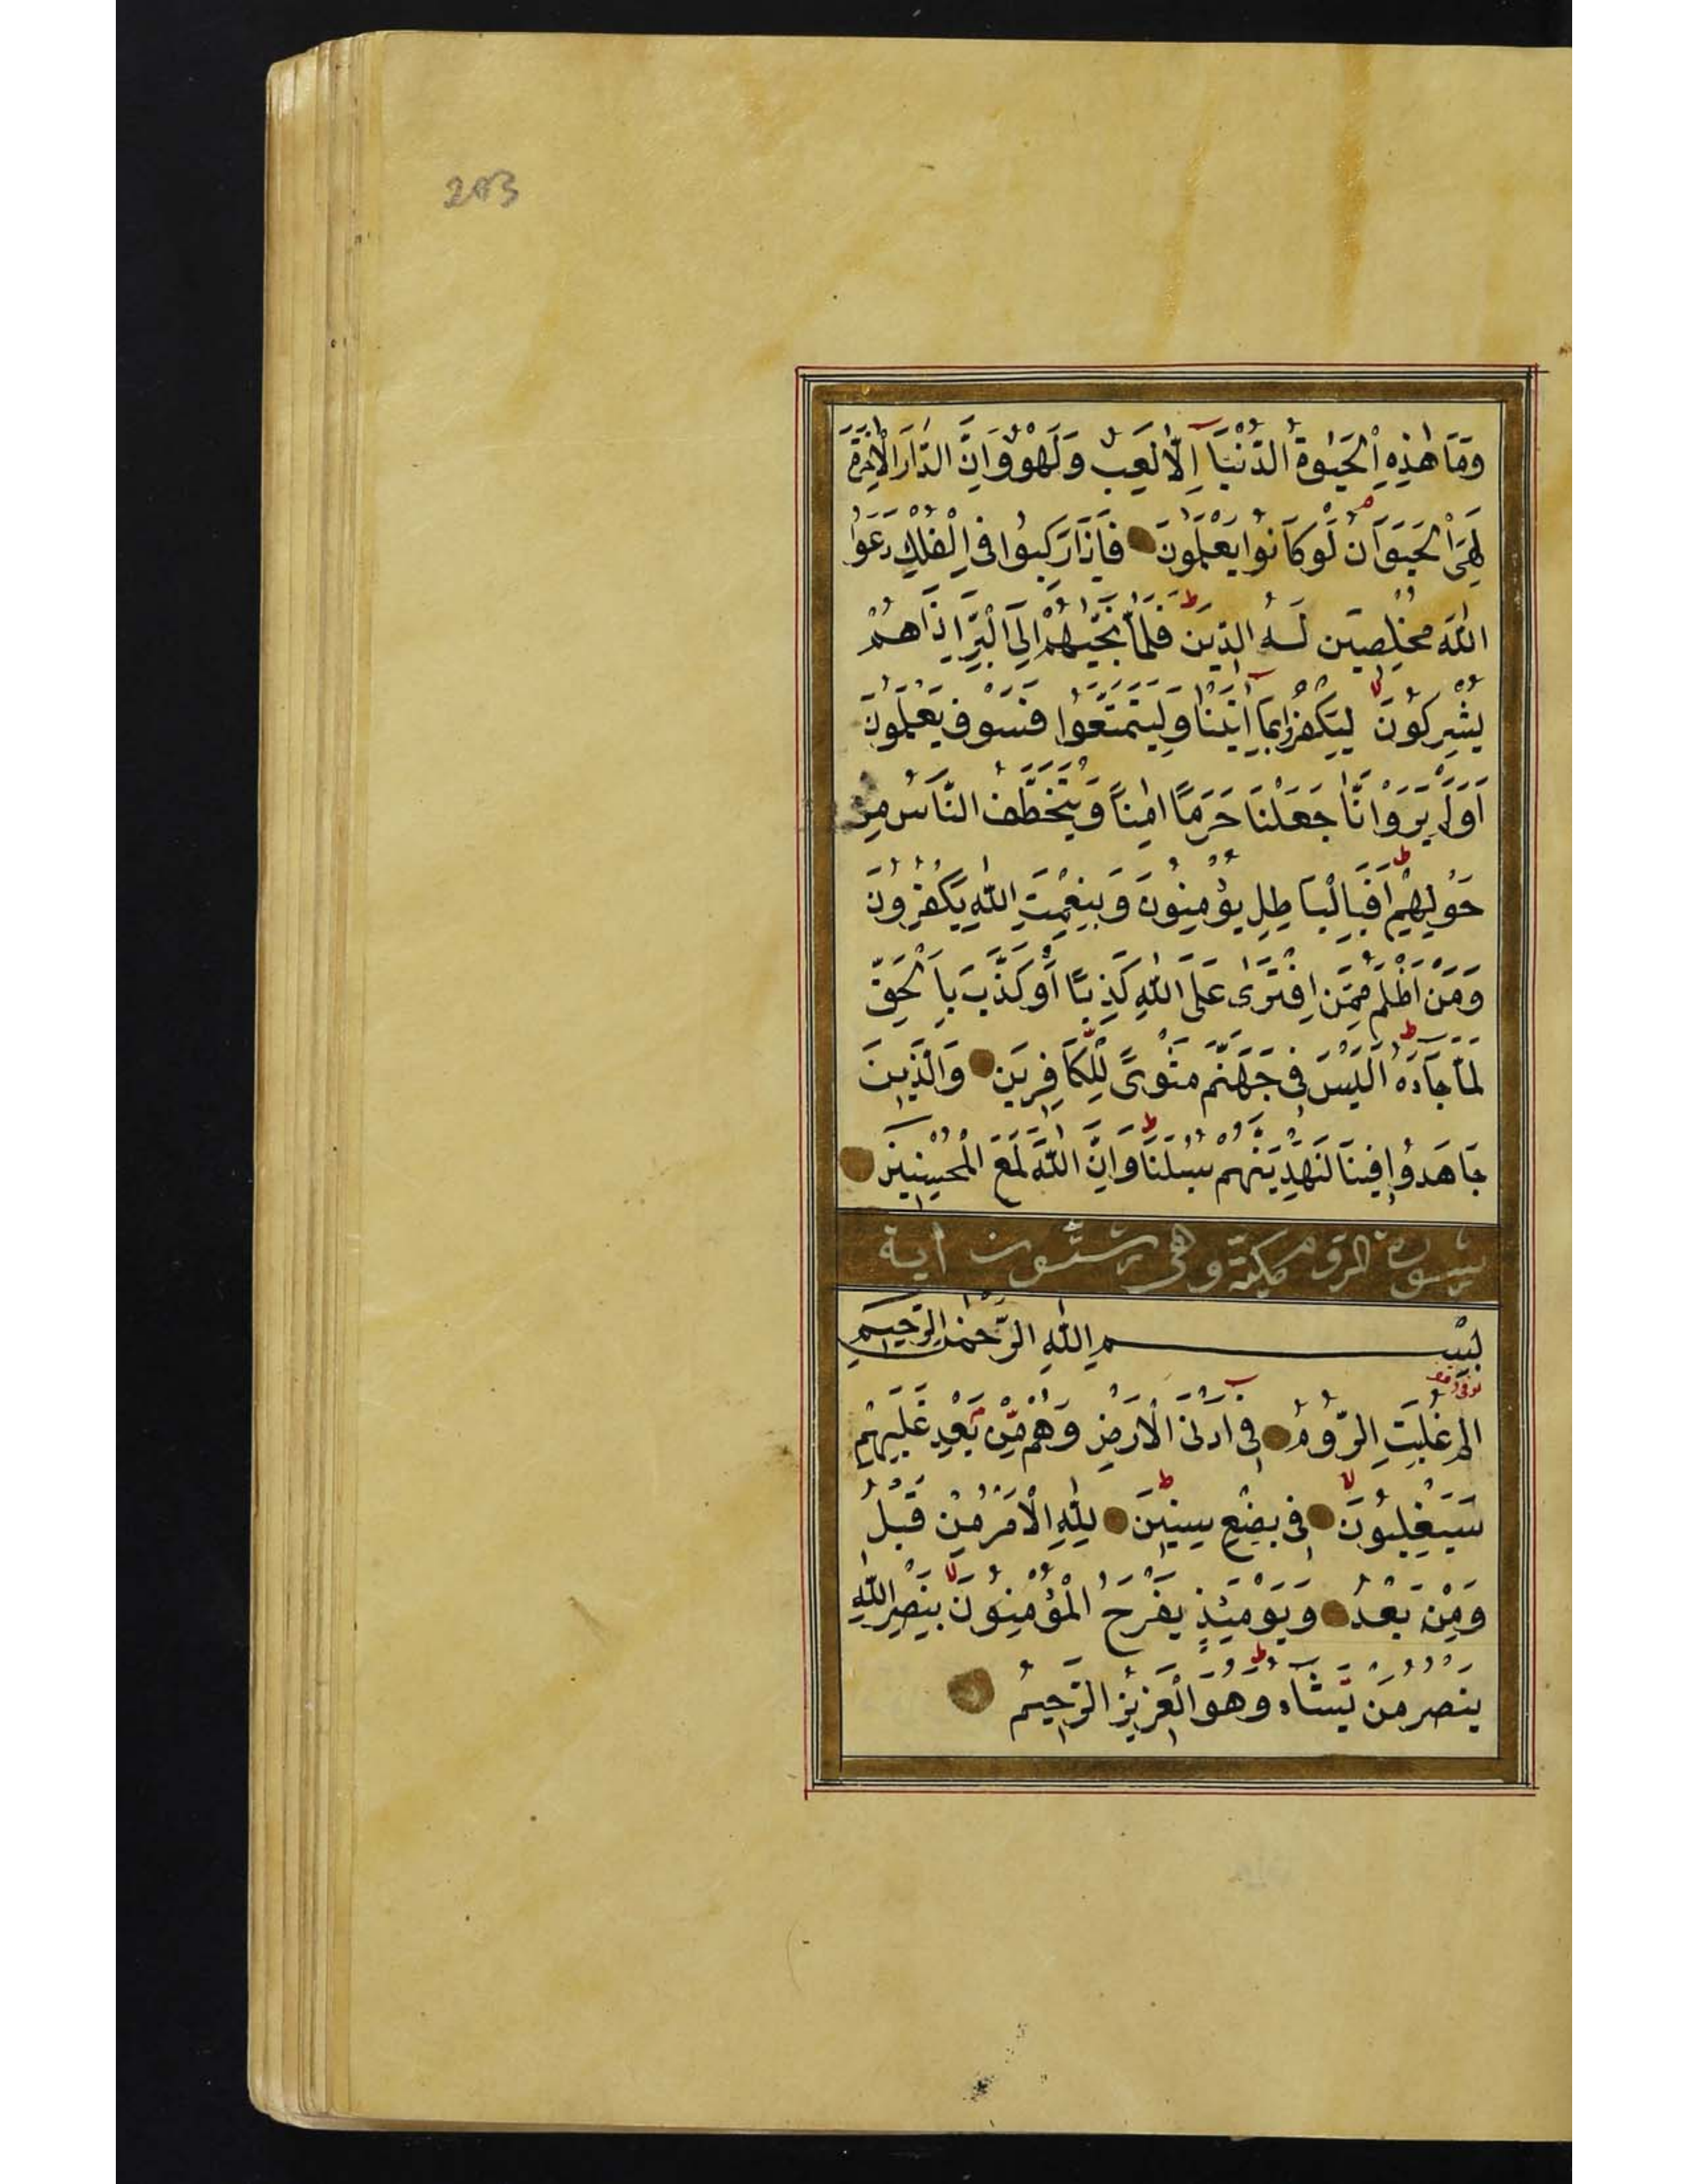 203
وَمَا هٰذِهِ الْحَيٰوةُ الدُّنْيَا اِلَّا لَعِبٌ وَلَهْوٌ وَاِنَّ الدَّارَ الْاٰخِرَةَ
لَهِيَ الْحَيَوَانُ لَوْ كَانُوا يَعْلَمُونَ فَاِذَا رَكِبُوا فِي الْفُلْكِ دَعَوُا
اللّٰهَ مُخْلِصِينَ لَهُ الدِّينَ فَلَمَّا نَجّٰيهُمْ اِلَى الْبَرِّ اِذَا هُمْ
يُشْرِكُونَ لِيَكْفُرُوا بِمَا اٰتَيْنَا وَلِيَتَمَتَّعُوا فَسَوْفَ يَعْلَمُونَ
اَوَلَمْ يَرَوْا اَنَّا جَعَلْنَا حَرَمًا اٰمِنًا وَيُتَخَطَّفُ النَّاسُ مِنْ
حَوْلِهِمْ اَفَبِالْبَاطِلِ يُؤْمِنُونَ وَبِنِعْمَتِ اللّٰهِ يَكْفُرُونَ
وَمَنْ اَظْلَمُ مِمَّنِ افْتَرٰى عَلَى اللّٰهِ كَذِبًا اَوْ كَذَّبَ بِالْحَقِّ
لَمَّا جَاءَهُ اَلَيْسَ فِي جَهَنَّمَ مَثْوًى لِلْكَافِرِينَ وَالَّذِينَ
جَاهَدُوا فِينَا لَنَهْدِيَنَّهُمْ سُبُلَنَا وَاِنَّ اللّٰهَ لَمَعَ الْمُحْسِنِينَ
سورة الروم مكية وهي ستون آية
بِسْمِ اللّٰهِ الرَّحْمٰنِ الرَّحِيمِ
الم غُلِبَتِ الرُّومُ فِي اَدْنَى الْاَرْضِ وَهُمْ مِنْ بَعْدِ غَلَبِهِمْ
سَيَغْلِبُونَ فِي بِضْعِ سِنِينَ لِلّٰهِ الْاَمْرُ مِنْ قَبْلُ
وَمِنْ بَعْدُ وَيَوْمَئِذٍ يَفْرَحُ الْمُؤْمِنُونَ بِنَصْرِ اللّٰهِ
يَنْصُرُ مَنْ يَشَاءُ وَهُوَ الْعَزِيزُ الرَّحِيمُ